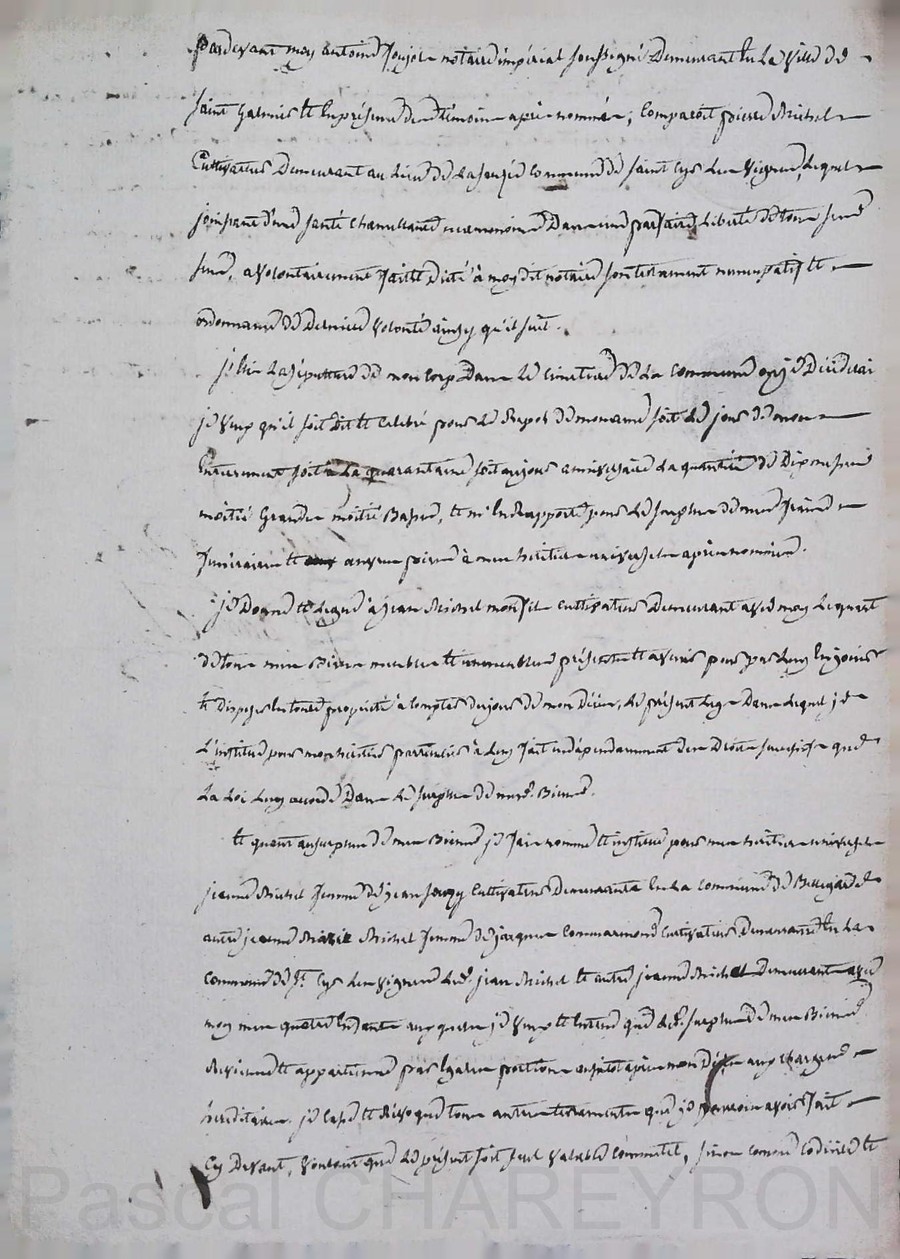 Pardevant moy antoine Joujot notaire impérial soussigné Demeurant En La Ville de
saint Galmier Et En présence des témoins après nommés; Comparoit pierre Michel
Cultivateur Demeurant au Lieu de commune de saint Cyr Les Vignes, Lequel
jouissant d'une santé Chancellante neanmoins Dans une parfaite Liberté de tous ses
sens, a volontairement fait Et Dicté à moy dit notaire son testament nuncupatif Et
ordonnance de Derniere Volonté ainsy qu'il suit.
j'Elis La sépulture de mon Corps Dans Le Cimetiere de La Commune ou je Décéderai
je veux qu'il soit Dit Et Celebré pour Le Repos de mon ame soit Le jour de mon
Enterrement soit à La quarantaine soit au jour anniversaire La quantité de Dix messes
moitié Grandes moitié Basses, Et m'En Rapporte pour Le surplus de mes fraix
funéraires Et aux prieres à mes heritiers universels après nommés.
je Donne Et Legue à jean Michel mon fils Cultivateur Demeurant avec moy Le quart
de tous mes Biens meubles Et immeubles présents Et avenir pour par Luy En jouir
Et Disposer En toute propriété à Compter du jour de mon Décès, Le présent Legs Dans Lequel je
L'institue pour mon heritier particulier à Luy fait indépendamment des Droits successifs que
La Loi Luy accorde Dans Le surplus de mesd. Biens.
Et quant au surplus de mes Biens je fais nomme Et institue pour mes heritiers universels
jeanne Michel femme de jean Cultivateur Demeurants En La Commune de Bellegarde
autre jeanne Marie Michel femme de jacques Commarmond Cultivateur Demeurant En La
Commune de St. Cyr Les Vignes Led. jean Michel Et autre jeanne Michel Demeurants avec
moy mes quatre Enfants aux quels je veux Et Entend que Led. surplus de mes Biens
Revienne Et appartienne par Egales portions aussitot après mon Décès aux charges
héréditaires. je Casse Et Révoque tous autres testaments que je pourrois avoir fait
Cy Devant, Voulant que Le présent soit seul valable Comme tel, sinon Comme Codicile Et
Pascal CHAREYRON